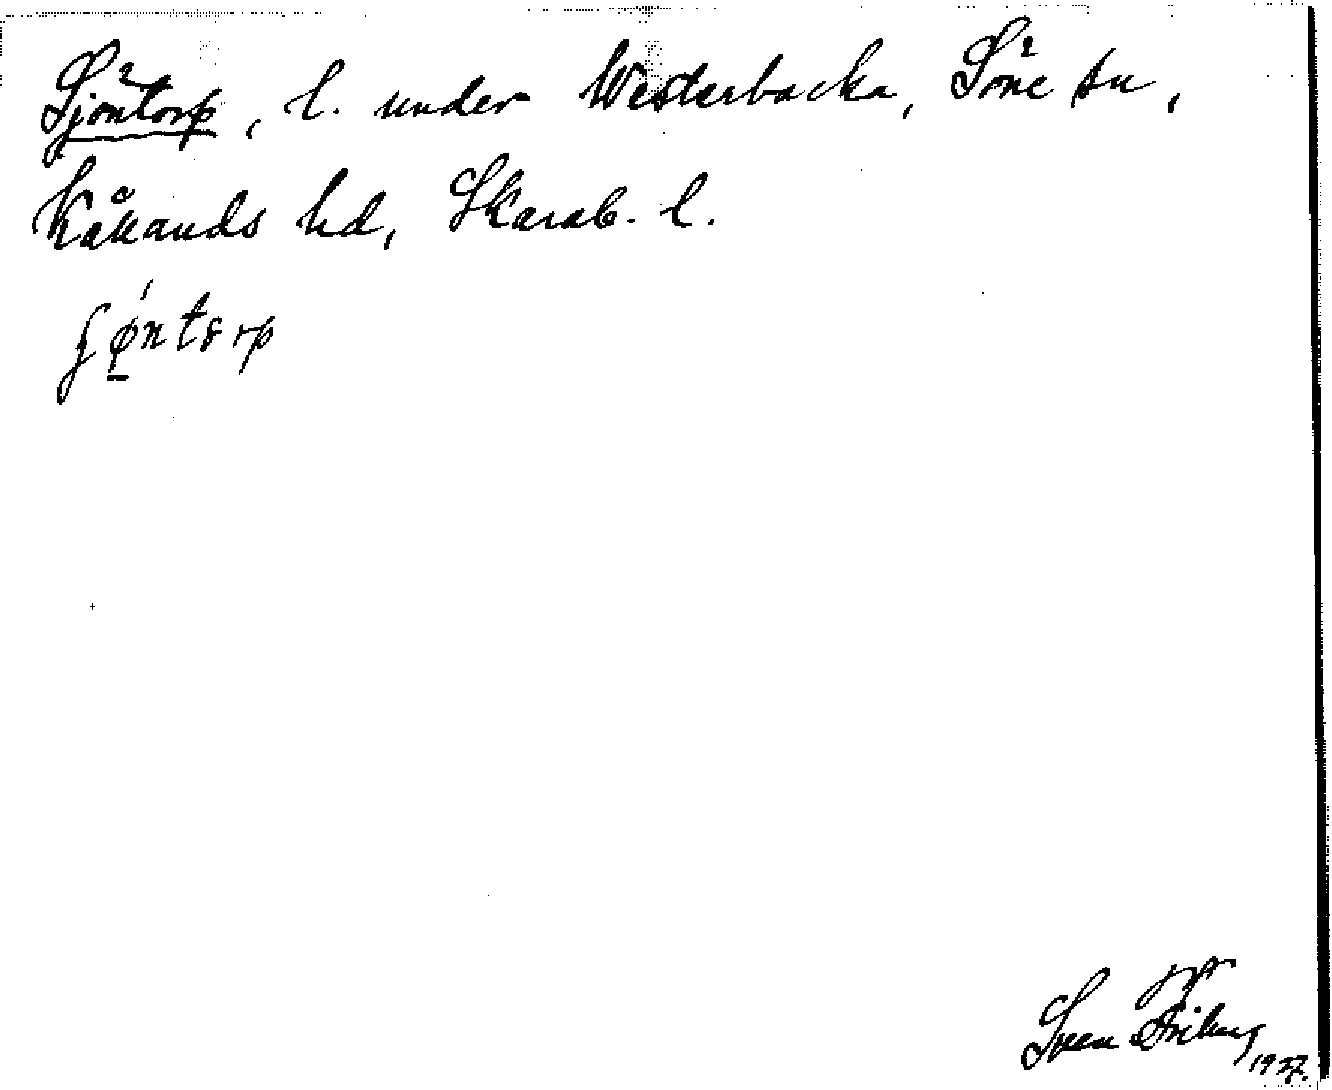 Sjöntorp, l. under Westerbacka, Söne sn,
Kållands hd, Skarab. l.
ʃøntorp
Sven
1927.